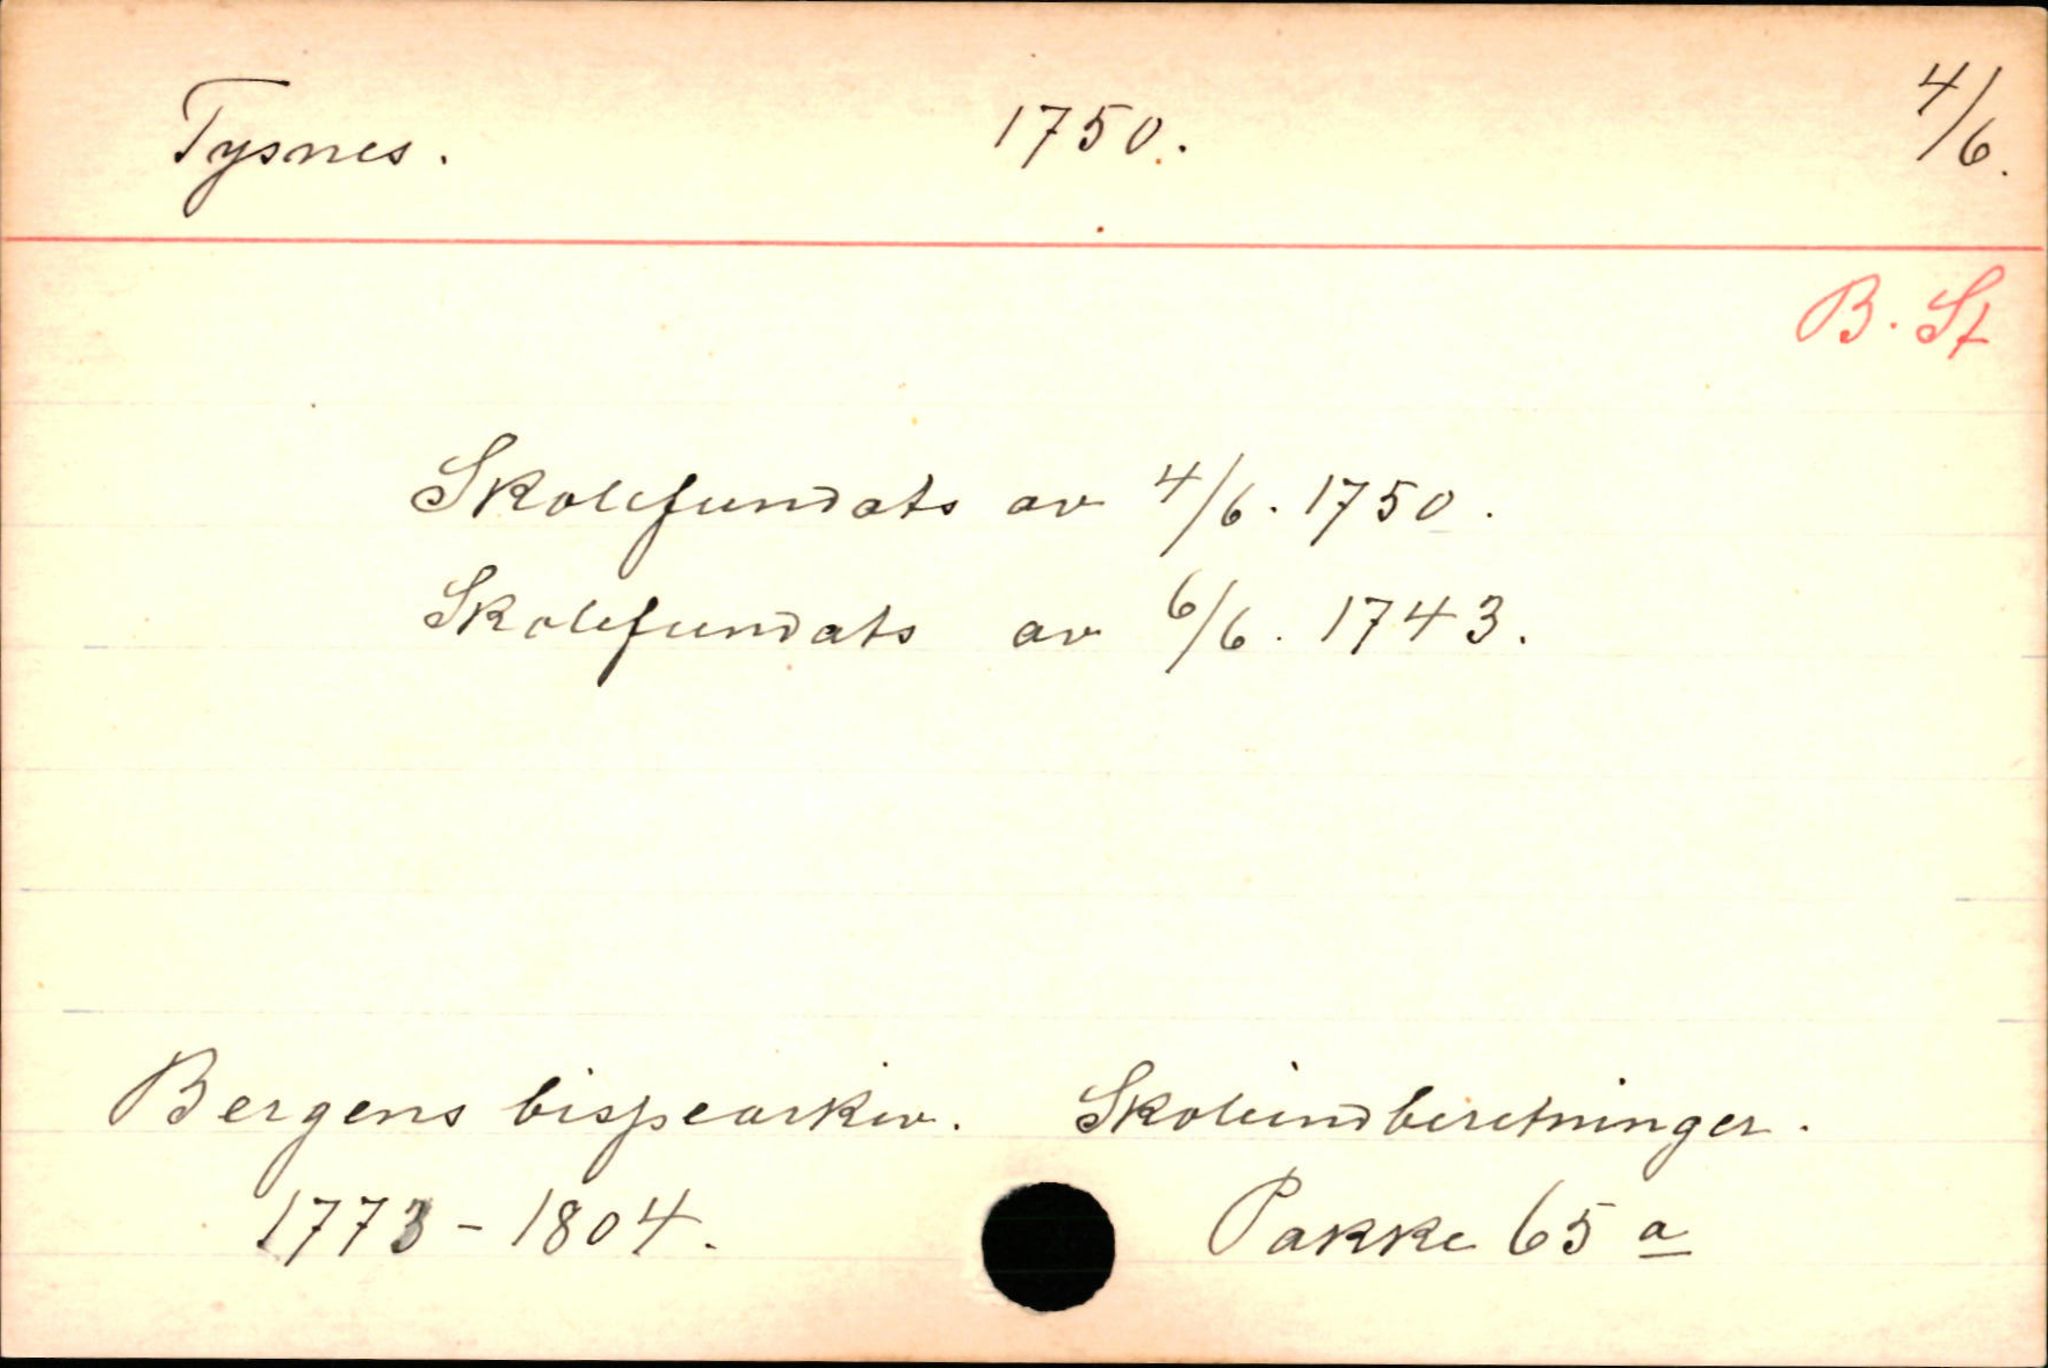 Tysnes. 1750. 4/6.
B. St
Skolefundats av 4/6. 1750.
Skolefundats av 6/6. 1743.
Bergens bispearkiv. Skoleindberetninger.
1773-1804. Pakke 65 a